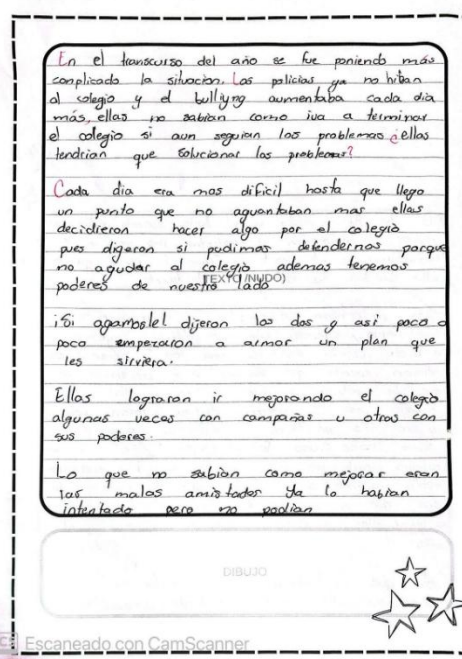 En el transcurso del año se fue poniendo más
complicado la situacion. Los policias ya no hiban
al colegio y el bulliyng aumentaba cada dia
más, ellas no sabian como iva a terminar
el colegio si aun seguian los problemas ¿ellas
tendrian que solucionar los problemas?
Cada dia era mas dificil hasta que llego
un punto que no aguantaban mas ellas
decidieron hacer algo por el colegio
pues digeron si pudimos defendernos porque
no agudar al colegio ademas tenemos
poderes de nuestro lado
TEXTO (NUDO)
¡Si agamosle! dijeron las dos y asi poco a
poco emperaron a armar un plan que
les sirviera.
Ellas lograron ir mejorando el colegio
algunas veces con campañas u otras con
sus poderes.
Lo que no sabian como mejorar eran
las malas amistades Ya lo habian
intentado pero no podian
DIBUJO
CS Escaneado con CamScanner